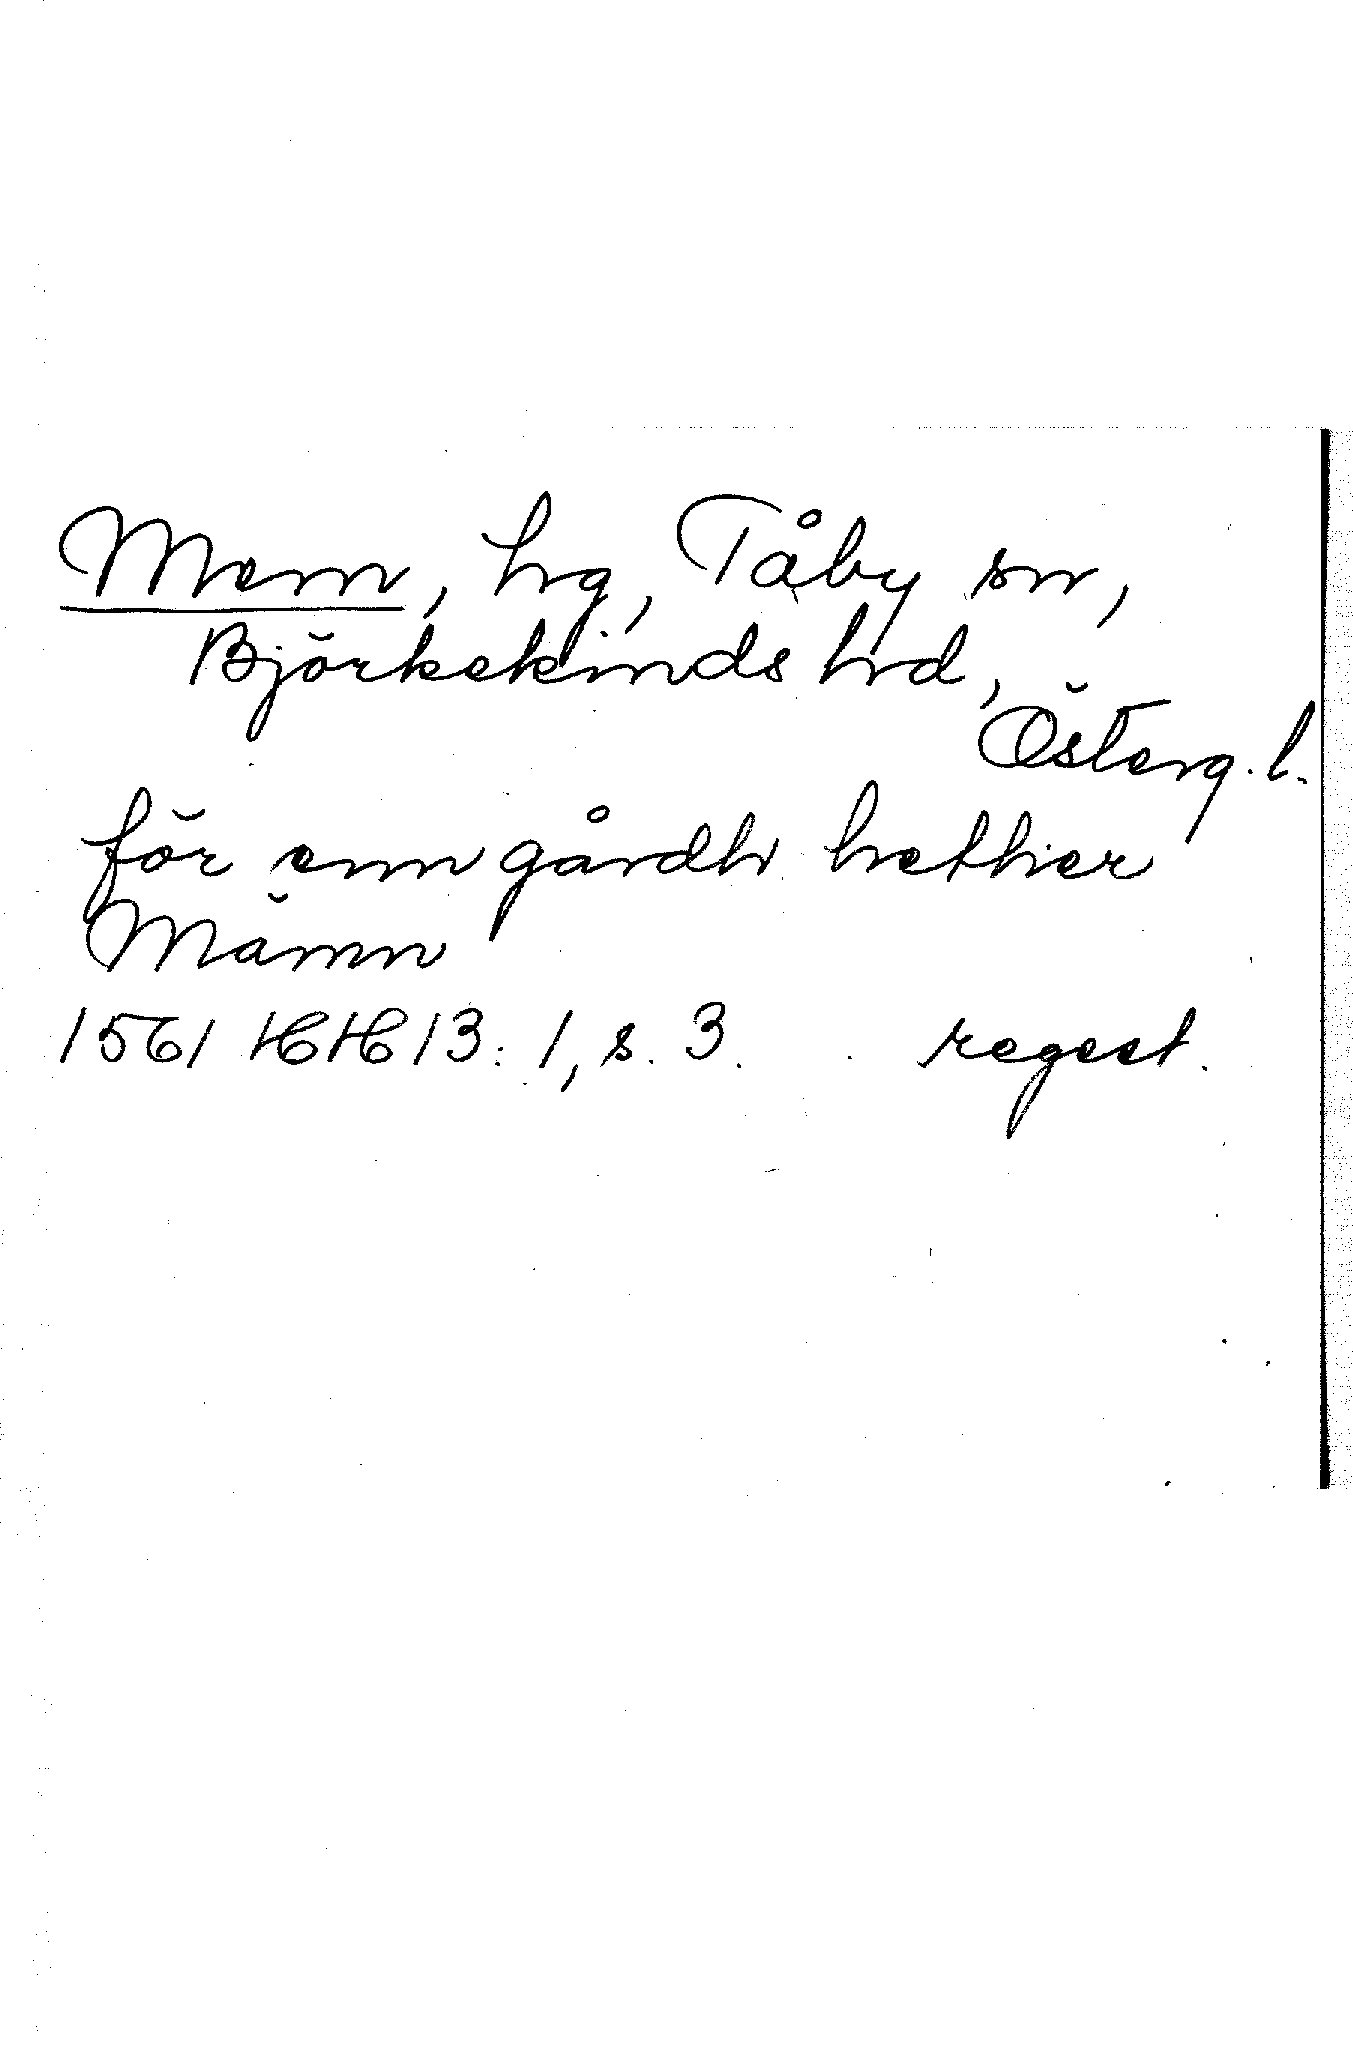 Mem, hg, Tåby sn,
Björkekinds hd,
Österg. l.
för enn gårdh hethier
Mämn
1561 HH 13: 1, s. 3. regest.